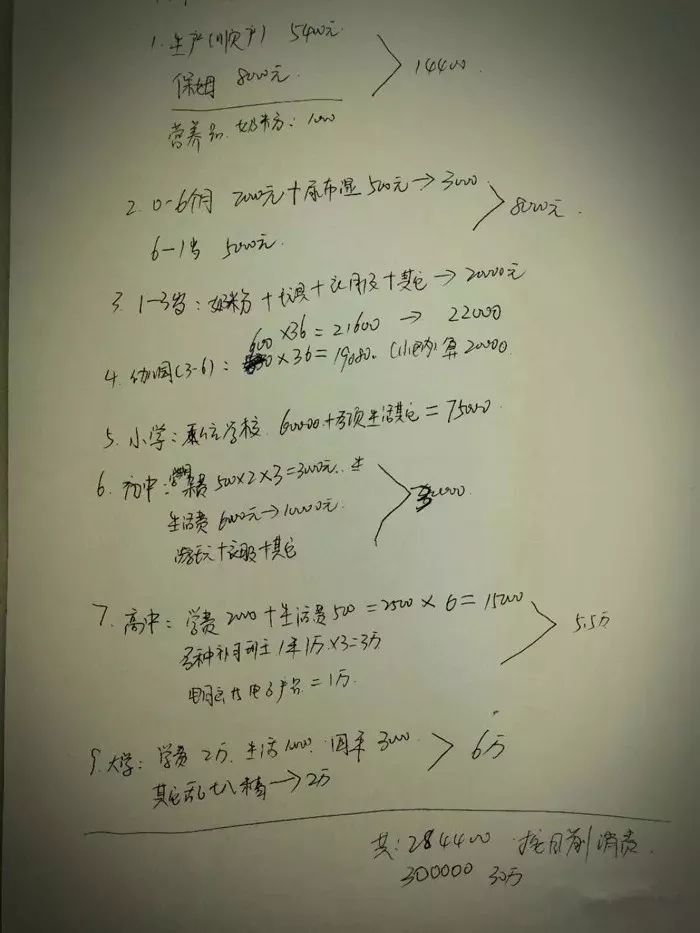 1. 生产(顺产) 5400元
保姆 8000元. 14400.
营养品. 奶粉: 1000
2. 0-6个月 2000元+尿布湿500元→3000
6-1岁 5000元. 8000元.
3. 1-3岁: 奶粉+玩具+衣服+其它→20000元
600×36=21600 → 22000
4. 幼园(3-6): ×36=19080. 算20000.
5. 小学: 学校. 60000+各项生活其它=75000.
6. 初中: 学杂费 500×2×3=3000元.
生活费 6000元→10000元.
+衣服+其它
7. 高中: 学费2000+生活费500=2500×6=15000
各种补习班 1年1万×3=3万 5.5万
电子产品=1万.
9. 大学: 学费2万. 生活1000. 3000. 6万
其它乱七八糟→2万
共: 284400 按目前消费.
300000 30万